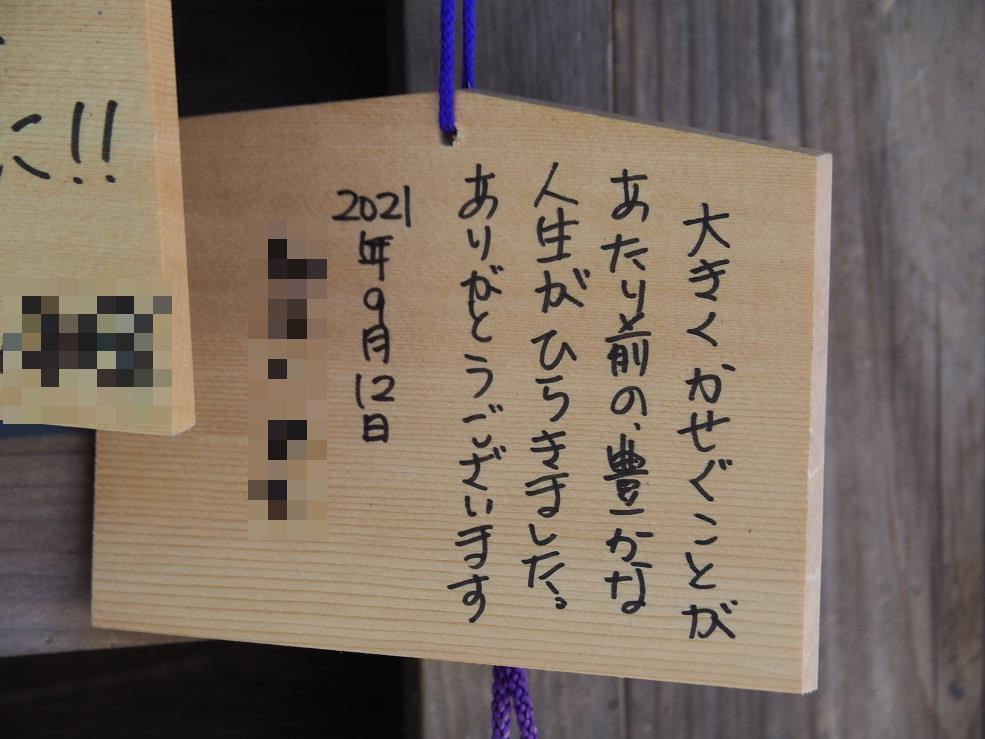 大きくかせぐことが
あたり前の、豊かな
人生がひらきました。
ありがとうございます
2021年9月12日
に!!